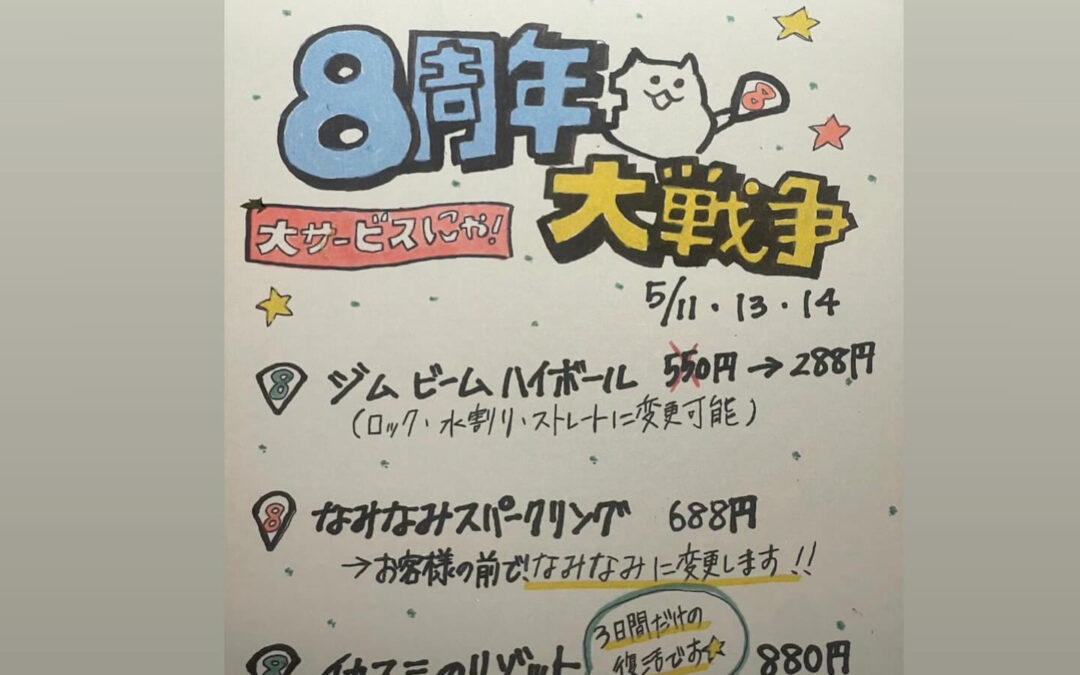 8周年
8
大戦争
大サービスにゃ!
5/11・13・14
8 ジムビームハイボール 550円→288円
(ロック・水割り・ストレートに変更可能)
8 なみなみスパークリング 688円
→お客様の前で!なみなみに変更します!!
3日間だけの
復活でお☆
8 イカスミのリゾット 880円